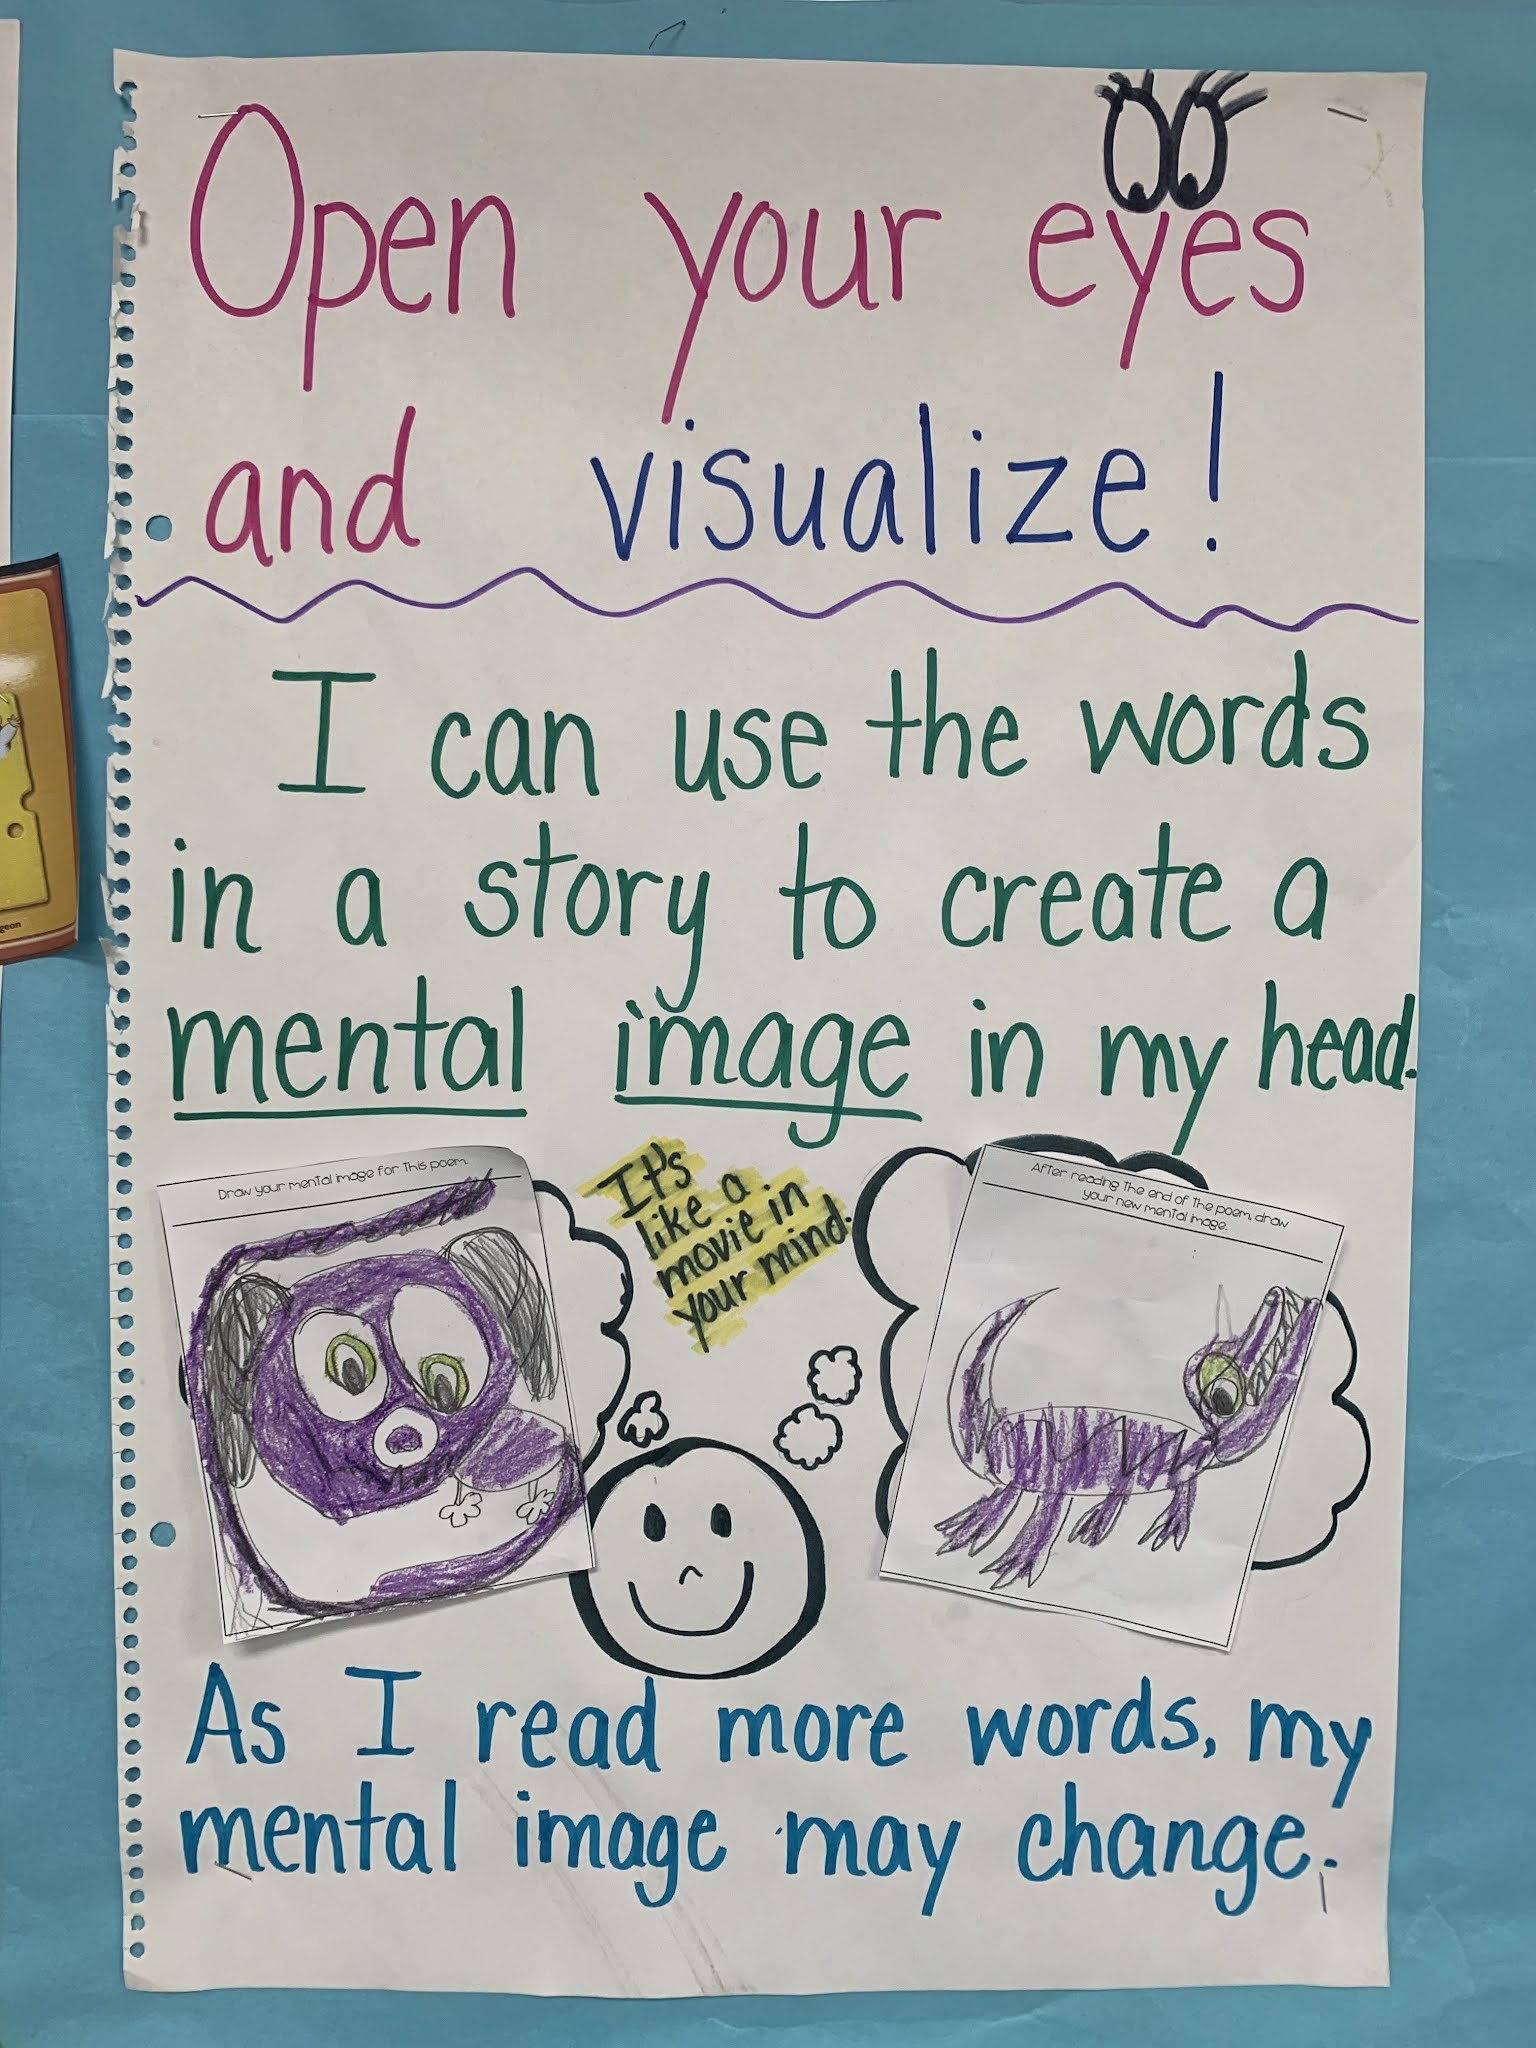 Open your eyes
and visualize!
I can use the words
in a story to create a
mental image in my head.
Draw your mental image for this poem.
It's
like a
movie in
your mind.
After reading the end of the poem, draw
your new mental image.
As I read more words, my
mental image may change.